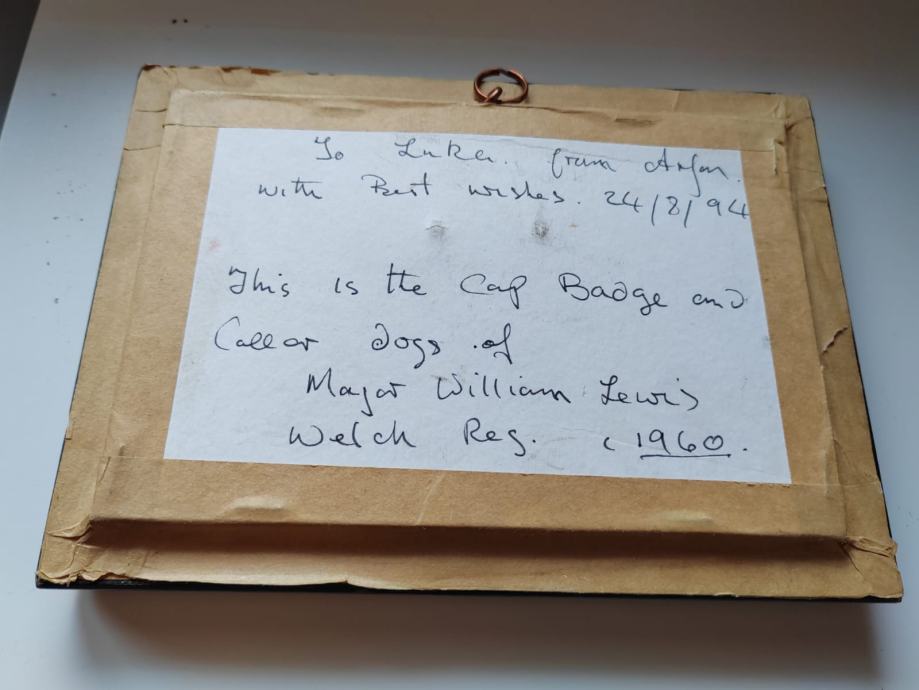 To Luke. from Arfon.
with Best wishes. 24/8/94
This is the Cap Badge and
Collar dogs of
Major William Lewis
Welch Reg. c 1960.